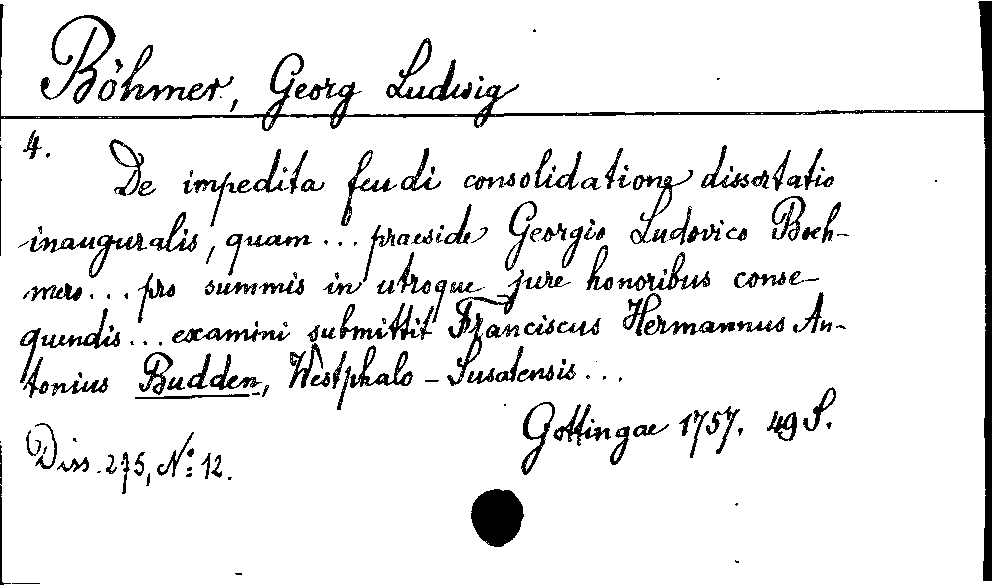 Böhmer, Georg Ludwig
4.
De impedita feudi consolidatione dissertatio
inauguralis, quam... praeside Georgio Ludovico Boeh-
mero... pro summis in utroque jure honoribus conse-
quendis... examini submittit Franciscus Hermannus An-
tonius Budden, Westphalo-Susatensis...
Gottingae 1757. 49 S.
Diss. 275, No: 12.